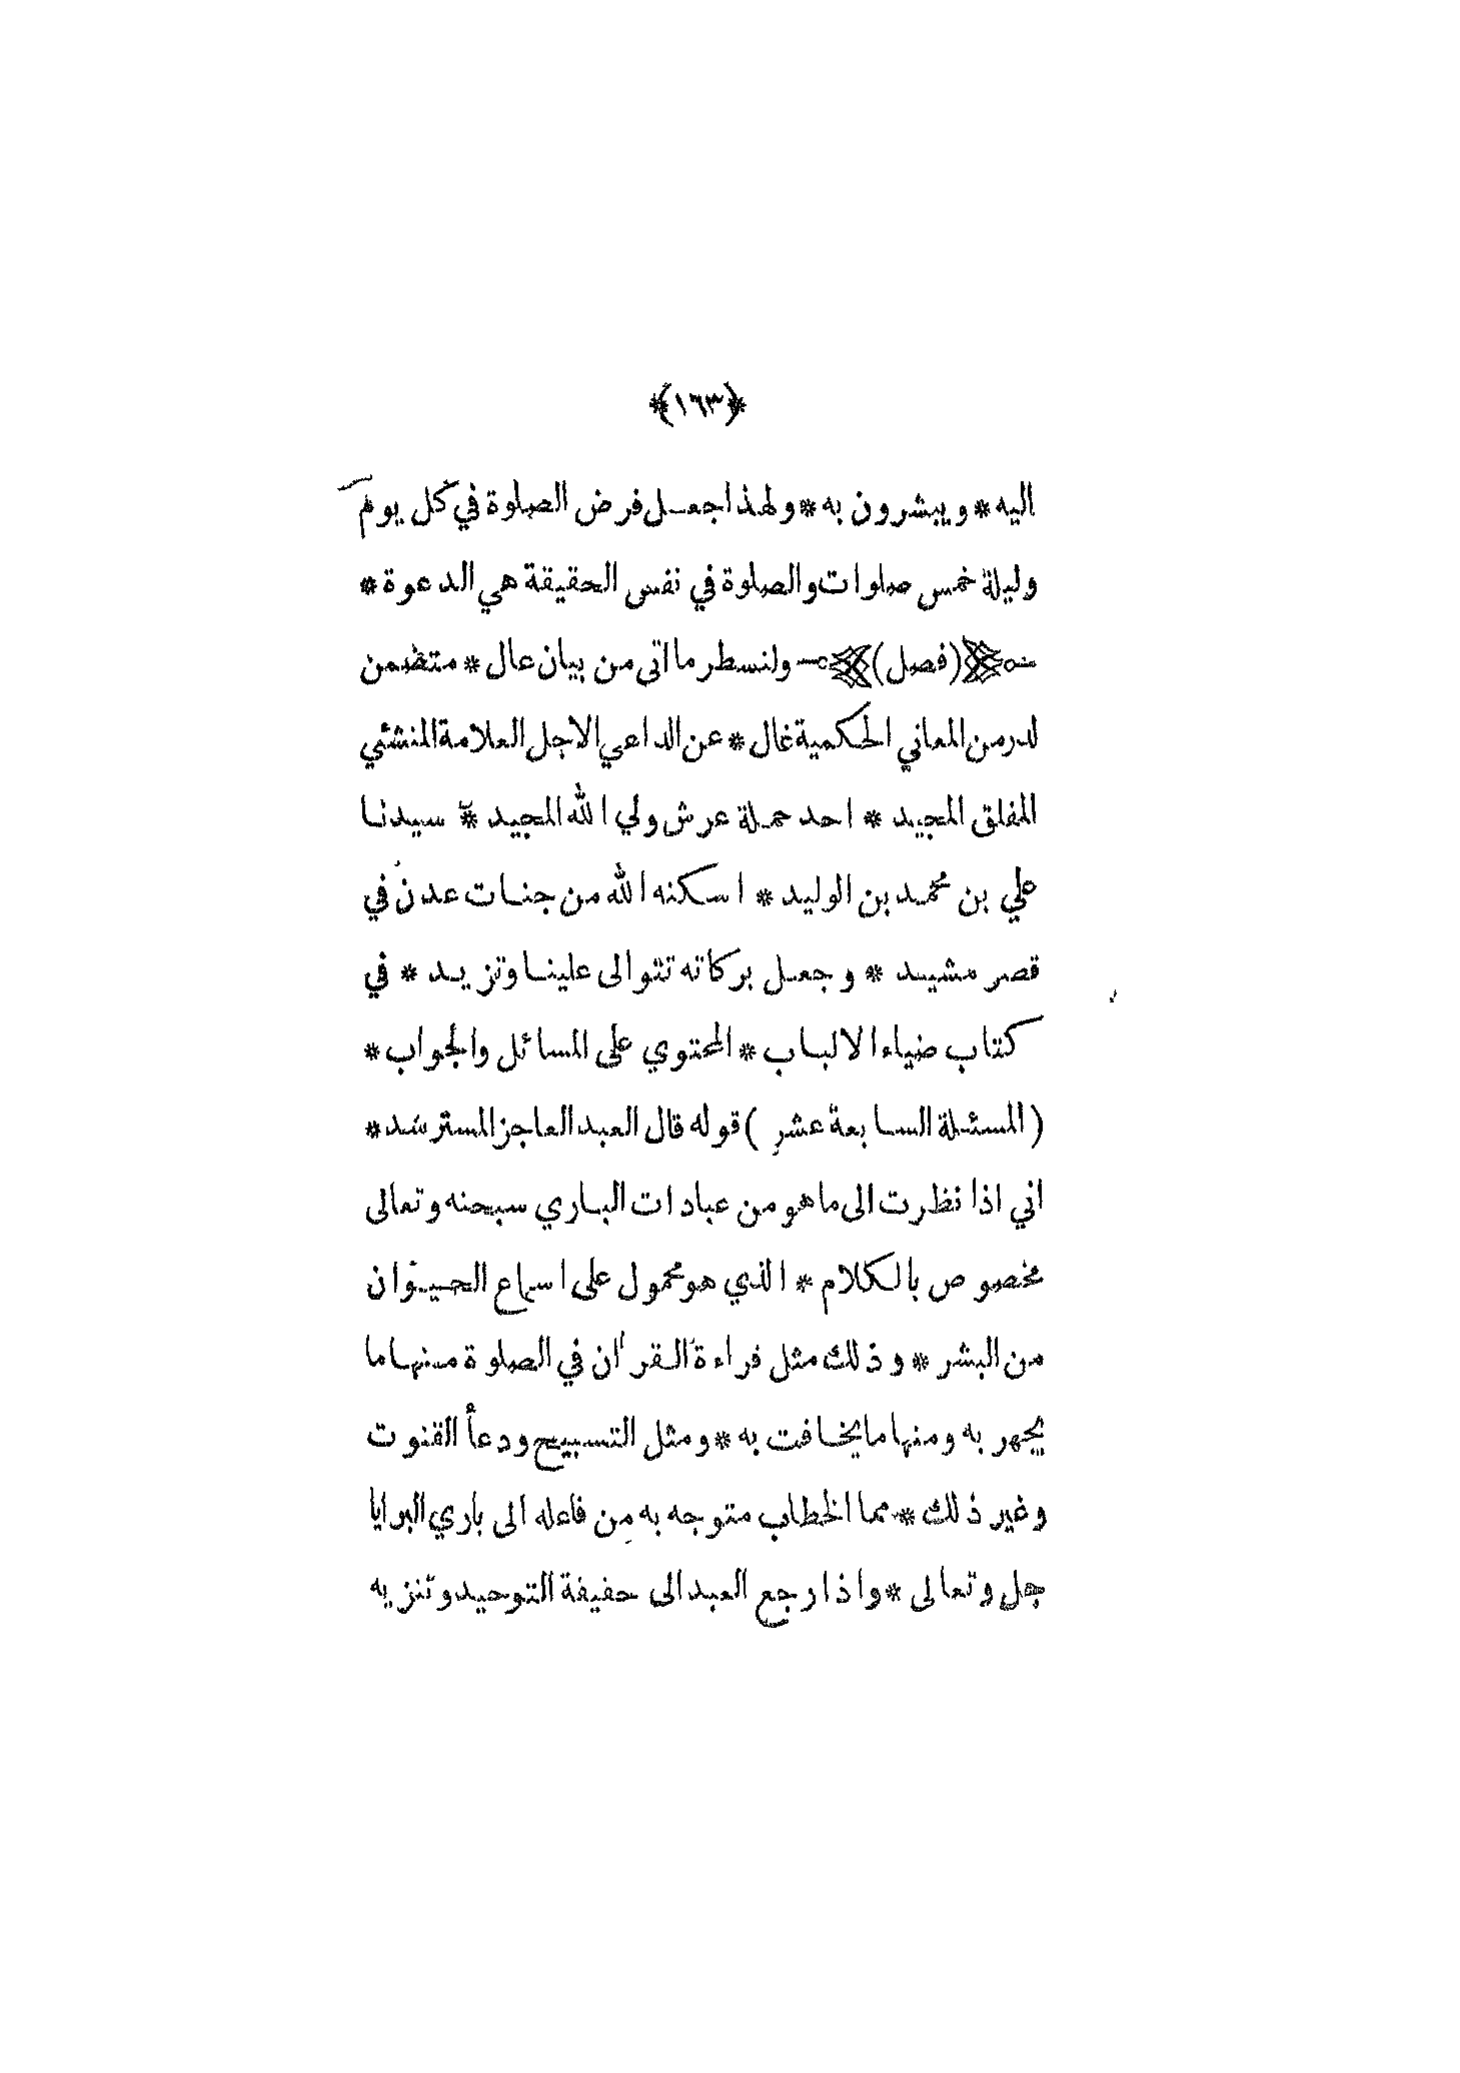 ﴿١٦٣﴾
اليه * ويبشرون به * ولهذا جعل فرض الصلوة في كل يوم
وليلة خمس صلوات والصلوة في نفس الحقيقة هي الدعوة *
(فصل) ولنسطر ما اتى من بيان عال * متضمن
لدر من المعاني الحكمية غال * عن الداعي الاجل العلامة المنشئي
المفلق المجيد * احد حملة عرش ولي الله المجيد * سيدنا
علي بن محمد بن الوليد * اسكنه الله من جنات عدن في
قصر مشيد * وجعل بركاته تتوالى علينا وتزيد * في
كتاب ضياء الالباب * المحتوي على المسائل والجواب *
(المسئلة السابعة عشر) قوله قال العبد العاجز المسترشد *
اني اذا نظرت الى ما هو من عبادات الباري سبحنه وتعالى
مخصوص بالكلام * الذي هو محمول على اسماع الحيوان
من البشر * وذلك مثل قراءة القرآن في الصلوة منها ما
يجهر به ومنها ما يخافت به * ومثل التسبيح ودعأ القنوت
وغير ذلك * مما الخطاب متوجه به من فاعله الى باري البرايا
جل وتعالى * واذا رجع العبد الى حقيقة التوحيد وتنزيه